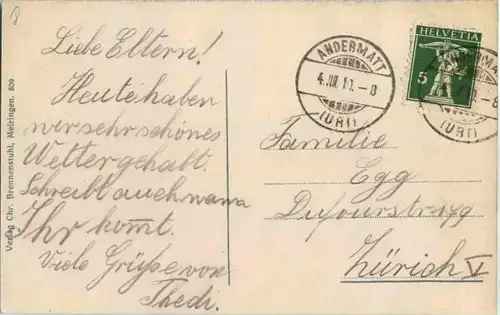 Liebe Eltern!
Heute haben
wir sehr schönes
Wetter gehabt.
Schreibt auch wann
Ihr kommt.
Viele Grüße von
Thedi.
Familie
Egg
Dufourstr.
Zürich V
ANDERMATT
(URI)
HELVETIA
5
ANDERMATT
(URI)
Verlag Chr. Brennenstuhl, Meiringen. 809